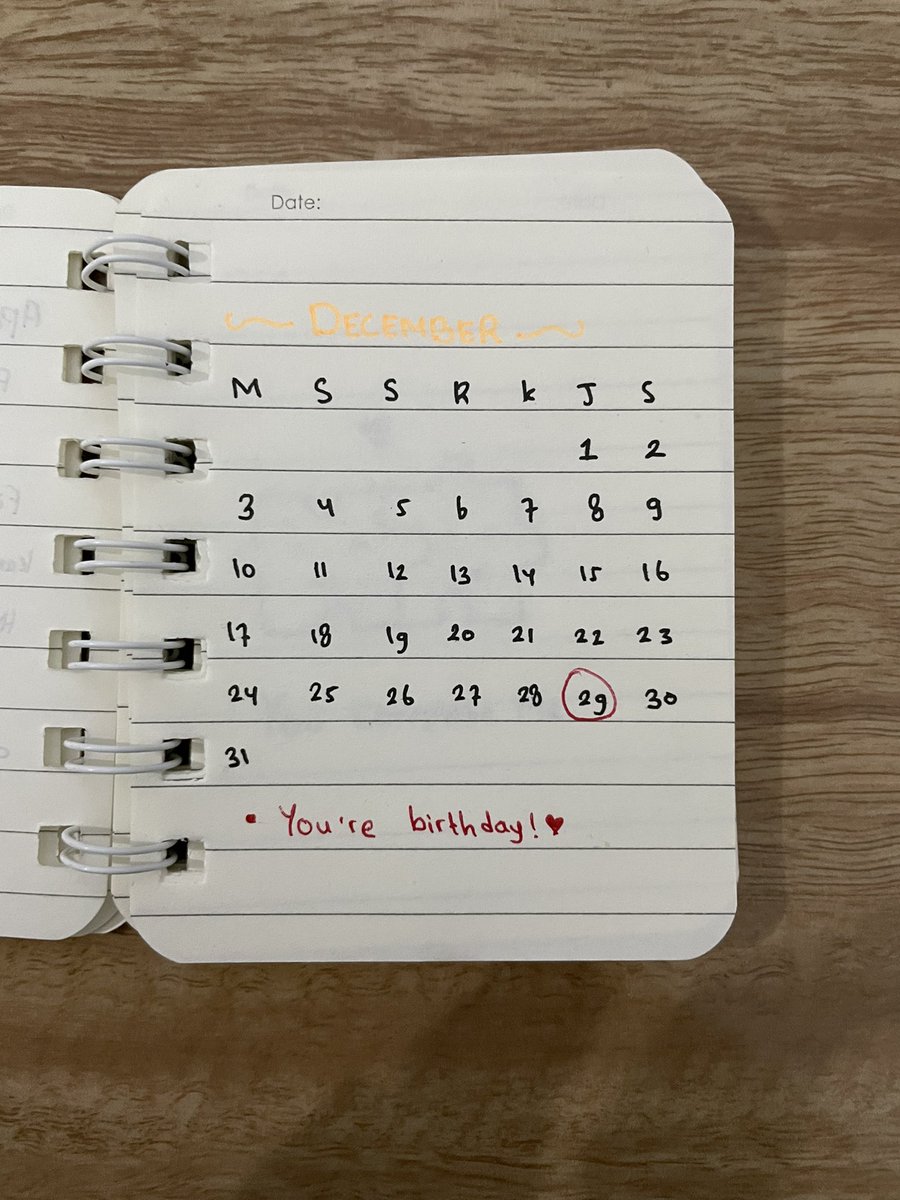 Date:
~ DECEMBER ~
M S S R K J S
1 2
3 4 5 6 7 8 9
10 11 12 13 14 15 16
17 18 19 20 21 22 23
24 25 26 27 28 29 30
31
• You're birthday! ♥